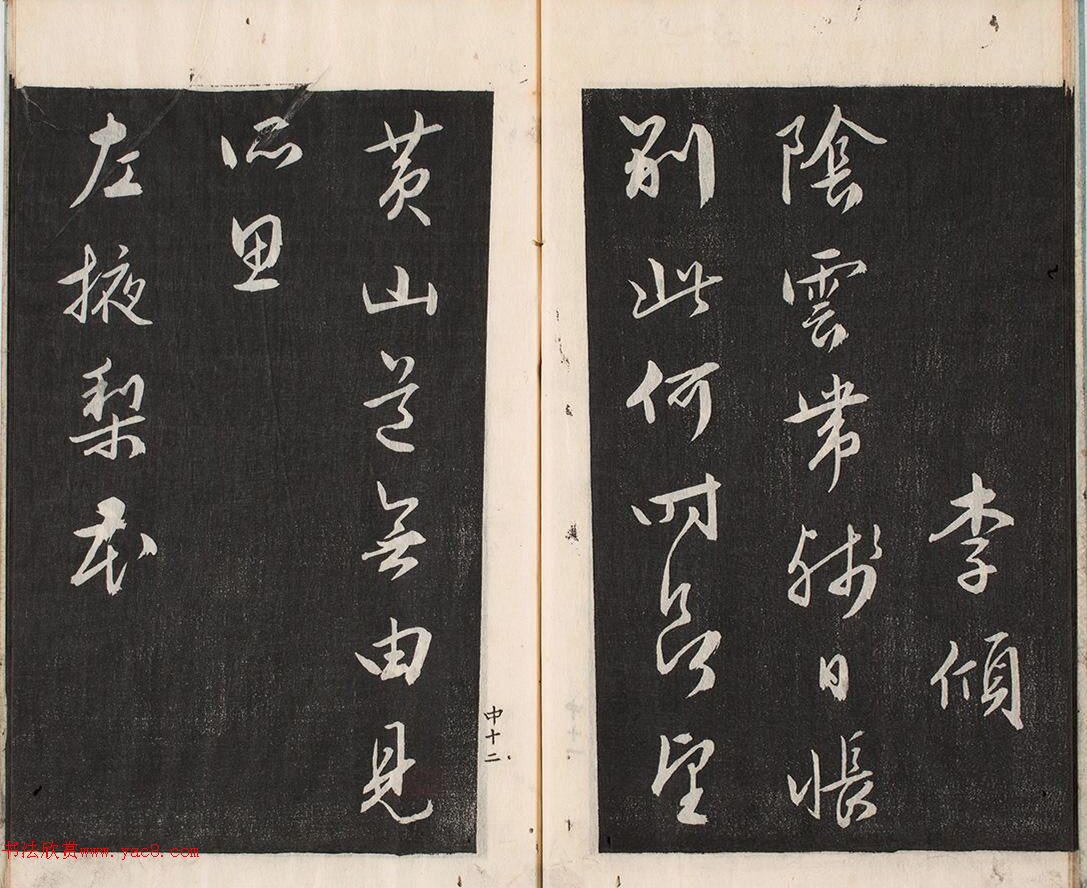 李頎
陰雲帶殘日悵
別此何時欲望
黃山道無由見
所思
左掖梨花
中十二
书法欣赏www.yac8.com